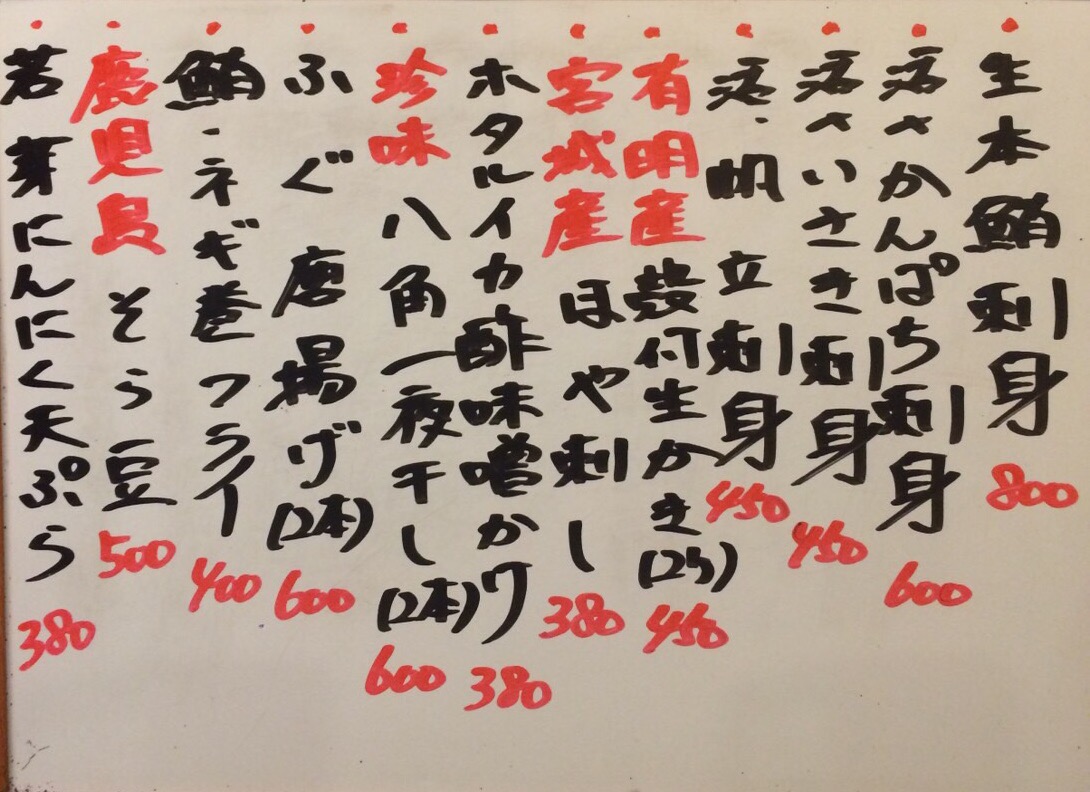 ・生本鮪刺身 800
・活〆かんぱち刺身 600
・活〆いさき刺身 450
・活帆立刺身 450
・有明産 殻付生かき(2ケ) 450
・宮城産 ほや刺し 380
・ホタルイカ酢味噌かけ 380
・珍味 八角一夜干し(2本) 600
・ふぐ唐揚げ(2本) 600
・鮪・ネギ巻フライ 400
・鹿児島 そら豆 500
・若芽にんにく天ぷら 380